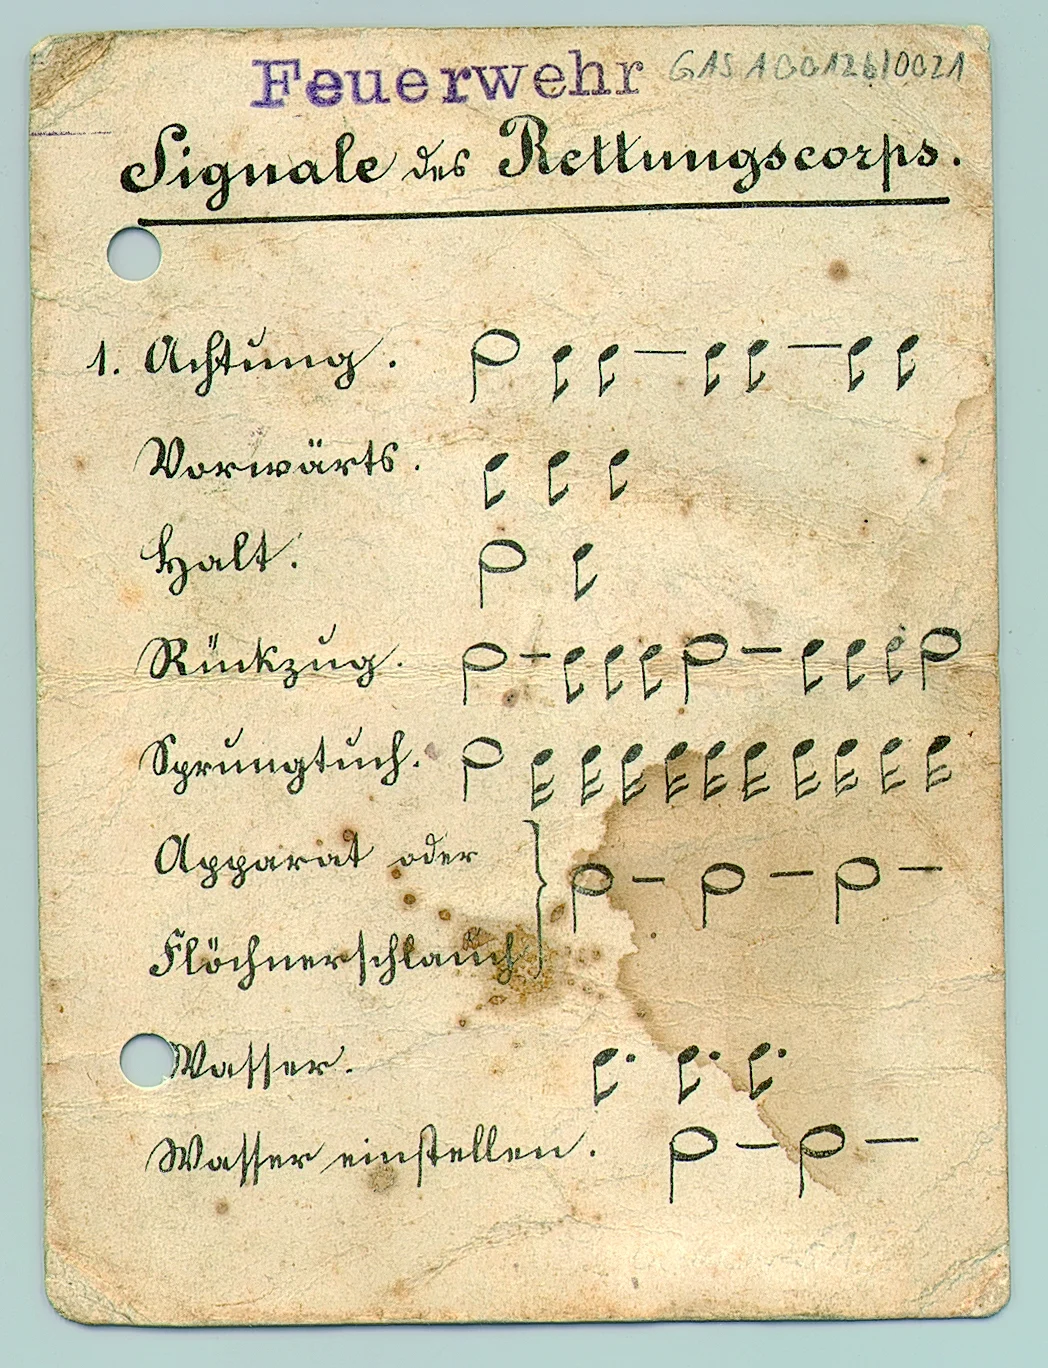 Feuerwehr GAS A 00126/0021
Signale des Rettungscorps.
1. Achtung.
Vorwärts.
Halt.
Rückzug.
Sprungtuch.
Apparat oder
Flöchnerschlauch
Wasser.
Wasser einstellen.